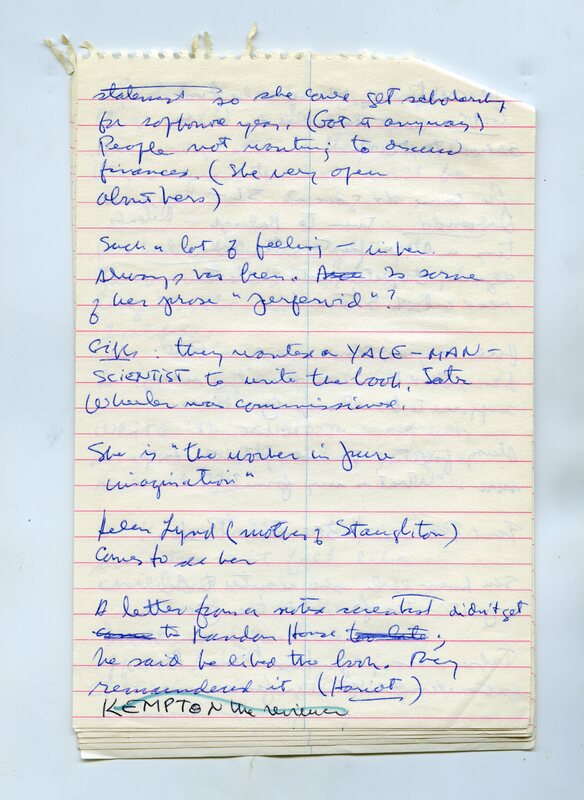 statement so she could get scholarship
for sophomore year. (Got it anyway)
People not wanting to discuss
finances. (She very open
about hers)
Such a lot of feeling – in her.
Always has been. Is some
of her prose "perfervid"?
Gibbs: they wanted a YALE-MAN-
SCIENTIST to write the book. Later
Wheeler was commissioned.
She is "the worker in pure
imagination"
Helen Lynd (mother of Staughton)
comes to see her
A letter from a noted scientist didn't get
came to Random House too late;
he said he liked the book. They
remaindered it (Hariot)
KEMPTON the reviewer